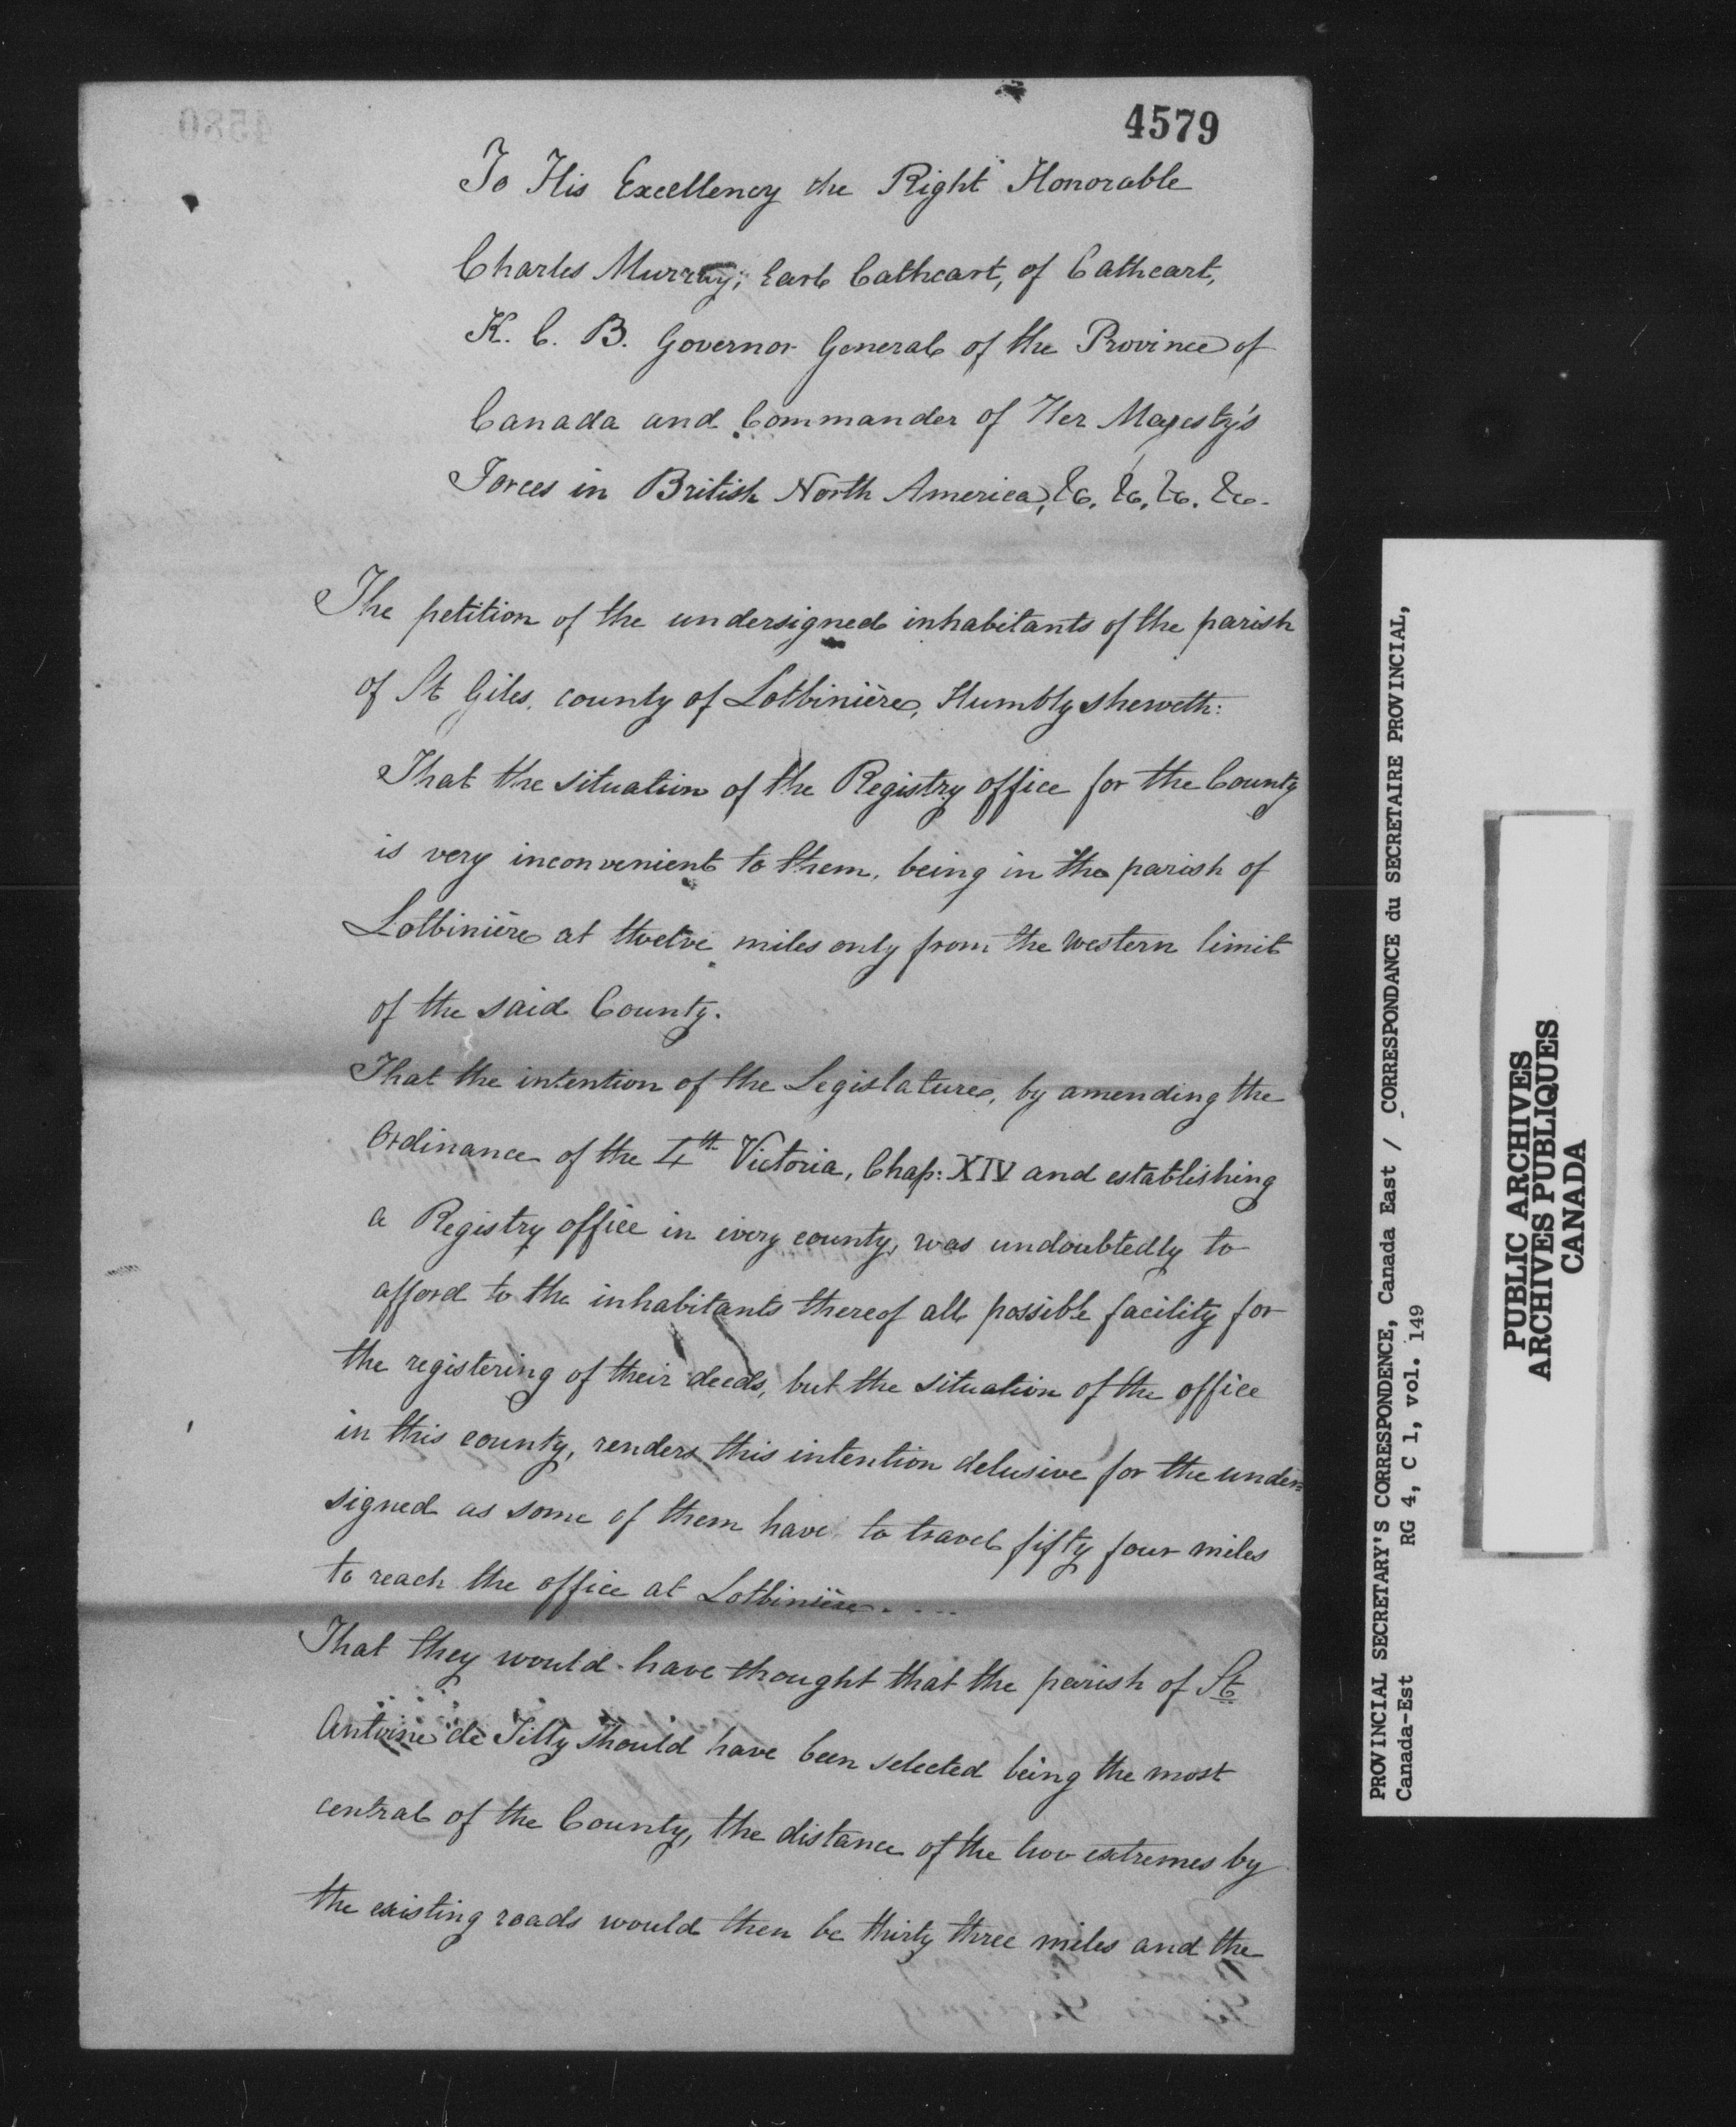 4579
To His Excellency the Right Honorable
Charles Murray; Earl Cathcart, of Cathcart,
K. C. B. Governor General of the Province of
Canada and Commander of Her Majesty's
Forces in British North America, &c, &c, &c. &c.
The petition of the undersigned inhabitants of the parish
of St Giles, county of Lotbinière, Humbly sheweth:
That the situation of the Registry office for the County
is very inconvenient to them, being in the parish of
Lotbinière at twelve miles only from the western limit
of the said County.
That the intention of the Legislature, by amending the
Ordinance of the 4th Victoria, Chap: XIV and establishing
a Registry office in every county, was undoubtedly to
afford to the inhabitants thereof all possible facility for
the registering of their deeds, but the situation of the office
in this county, renders this intention delusive for the under=
signed as some of them have to travel fifty four miles
to reach the office at Lotbinière. . . .
That they would have thought that the parish of St
Antoine de Tilly should have been selected being the most
central of the County, the distance of the two extremes by
the existing roads would then be thirty three miles and the
PROVINCIAL SECRETARY'S CORRESPONDENCE, Canada East / CORRESPONDANCE du SECRETAIRE PROVINCIAL,
Canada-Est RG 4, C 1, vol. 149
PUBLIC ARCHIVES
ARCHIVES PUBLIQUES
CANADA